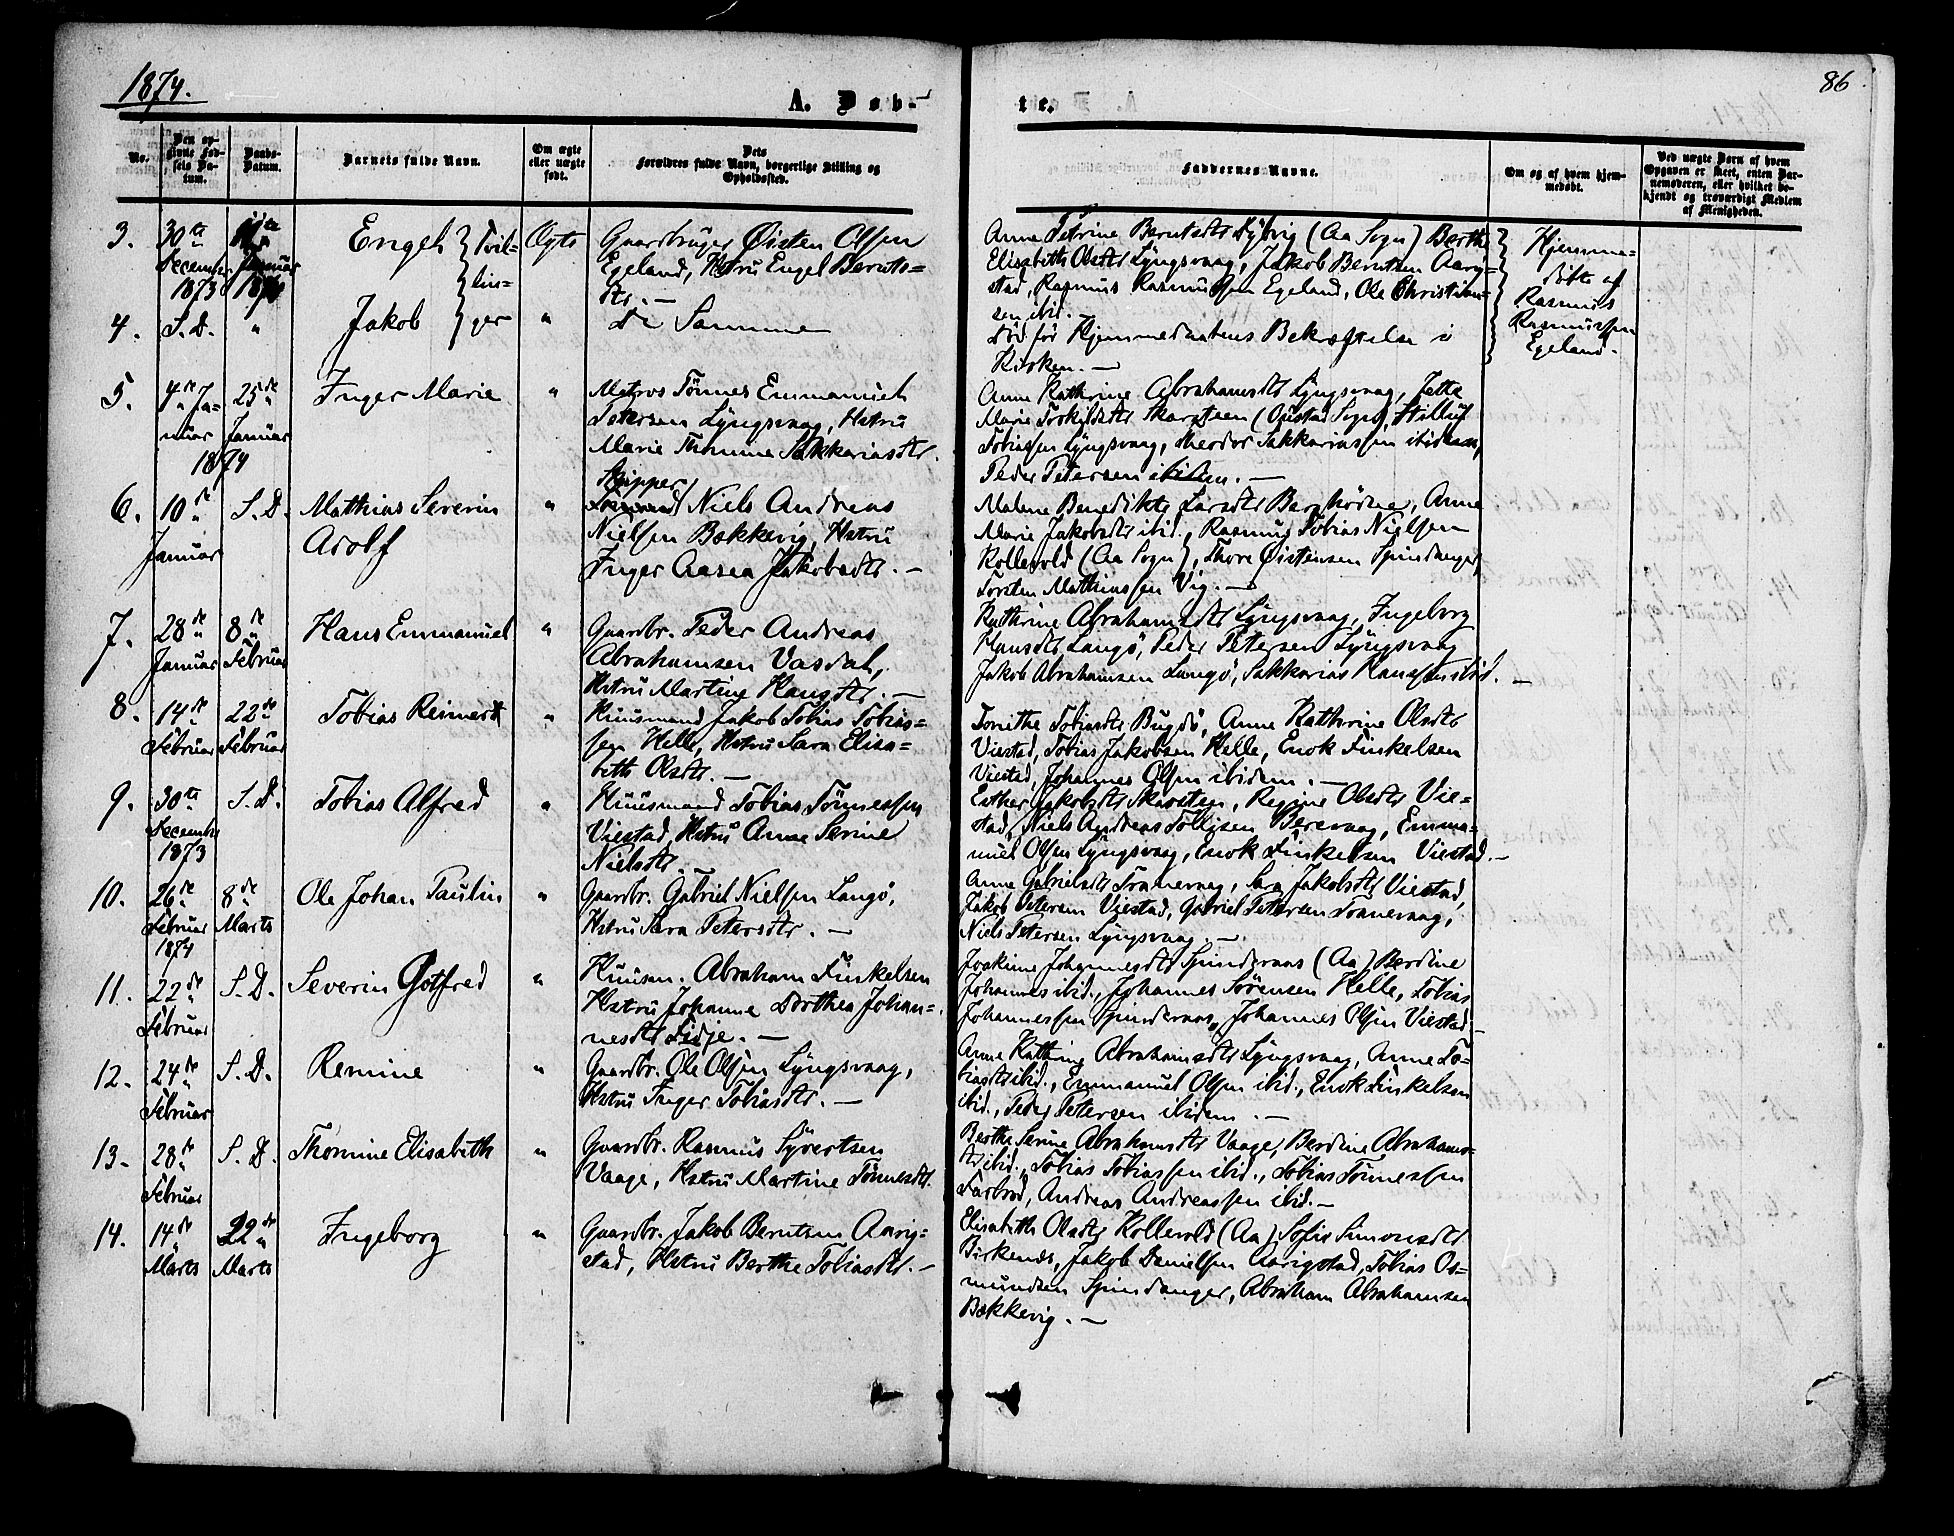 1874.
86
A. Døb-
te.
No.
Den op-
givne Fød-
sels Da-
tum.
Daabs-
Datum.
Barnets fulde Navn.
Om ægte
eller uægte
født.
Dets
Forældres fulde Navn, borgerlige Stilling og
Opholdssted.
Faddernes Navne.
Om og af hvem hjem-
medøbt.
Ved uægte Børn af hvem
Opgaven er skeet, enten Bar-
nemoderen, eller hvilket be-
kjendt og troværdigt Medlem
af Menigheden.
3.
30te
December
1873
Januar
1874
Engel } Tvil-
lin-
Ægte
Gaardbruger Øisten Olsen
Egeland, Hstru Engel Bernts-
dtr. —
Anne Petrine Berntsdtr Dybvig (Aa Sogn) Berthe
Elisabeth Olsdtr Lyngsvaag, Jakob Berntsen Aarig-
stad, Rasmus Rasmussen Egeland, Ole Christian-
sen ibid.
Hjemme-
døbte af
Rasmus
Rasmussen
Egeland.
4.
S. D.
"
Jakob } ger
"
De Samme
Død før Hjemmedaabens Bekræftelse i
Kirken. —
5.
4de Ja-
nuar
1874
25de
Januar
Inger Marie
"
Matros Tønnes Emmanuel
Petersen Lyngsvaag, Hstru
Marie Thomine Sakkariasdtr.
Anne Kathrine Abrahamsdtr Lyngsvaag, Jette
Marie Torkildsdtr Skarsteen (Oddestad Sogn),
Tobiassen Lyngsvaag, Theodor Sakkariassen ibidem,
Peder Petersen ibidem. —
6.
10de
Januar
S. D.
Mathias Severin
Adolf
"
Skipper
Niels Andreas
Nielsen Bækkevig, Hstru
Inger Aasea Jakobsdtr. —
Malene Benedikte Larsdtr Berghødne, Anne
Marie Jakobsdtr ibid., Rasmus Tobias Nielsen
Rollevold (Aa Sogn), Thore Øistensen Spindanger,
Torsten Mathiassen Vig. —
7.
28de
Januar
8de
Februar
Hans Emmanuel
"
Gaardbr. Peder Andreas
Abrahamsen Vasdal,
Hstru Martine Hansdtr. —
Kathrine Abrahamsdtr Lyngsvaag, Ingeborg
Hansdtr Langø, Peder Petersen Lyngsvaag
Jakob Abrahamsen Langø, Sakkarias Hanssen ibid. —
8.
14de
Februar
22de
Februar
Tobias Reinert
"
Huusmand Jakob Tobias Tobias-
sen Helle, Hstru Sara Elisa-
beth Olsdtr. —
Tonithe Tobiasdtr Bugdø, Anne Kathrine Olsdtr
Viestad, Tobias Jakobsen Helle, Enok Finkelsen
Viestad, Johannes Olsen ibidem. —
9.
30te
December
1873
S. D.
Tobias Alfred
"
Huusmand Tobias Tønnessen
Viestad, Hstru Anne Serine
Nielsdtr. —
Esther Jakobsdtr Skarsteen, Regine Olsdtr Vie-
stad, Niels Andreas Tollisen Berevaag, Emma-
nuel Olsen Lyngsvaag, Enok Finkelsen Viestad. —
10.
26de
Februar
1874
8de
Marts
Ole Johan Paulin
"
Gaardbr. Gabriel Nielsen Langø,
Hstru Sara Petersdtr. —
Anne Gabrielsdtr Tranevaag, Sara Jakobsdtr Viestad,
Jakob Petersen Viestad, Gabriel Petersen Tranevaag,
Niels Petersen Lyngsvaag. —
11.
22de
Februar
S. D.
Severin Gotfred
"
Huusm. Abraham Finkelsen
Hstru Johanne Dorthea Johan-
nesdtr Lidje. —
Joakime Johannesdtr Spindernæs (Aa) Berdine
Johannes ibid., Johannes Sørensen Helle, Tobias
Johannessen Spindernæs, Johannes Olsen Viestad. —
12.
24de
Februar
S. D.
Remine
"
Gaardbr. Ole Olsen Lyngsvaag,
Hstru Inger Tobiasdtr. —
Anne Kathrine Abrahamsdtr Lyngsvaag, Anne To-
biasdtr ibid., Emmanuel Olsen ibid., Enok Finkelsen
ibid., Peder Petersen ibidem. —
13.
28de
Februar
S. D.
Thomine Elisabeth
"
Gaardbr. Rasmus Syvertsen
Vaage, Hstru Martine Tønnesdtr.
Berthe Serine Abrahamsdtr Vaage, Berdine Abrahams-
dtr ibid., Tobias Tobiassen ibid., Tobias Tønnessen
Farbrod, Andreas Andreassen ibid. —
14.
14de
Marts
22de
Marts
Ingeborg
"
Gaardbr. Jakob Berntsen Aarig-
stad, Hstru Berthe Tobiasdtr. —
Elisabeth Olsdtr Rollevold (Aa) Sofie Simonsdtr
Birkenes, Jakob Danielsen Aarigstad, Tobias Os-
mundsen Spindanger, Abraham Abrahamsen
Bækkevig. —